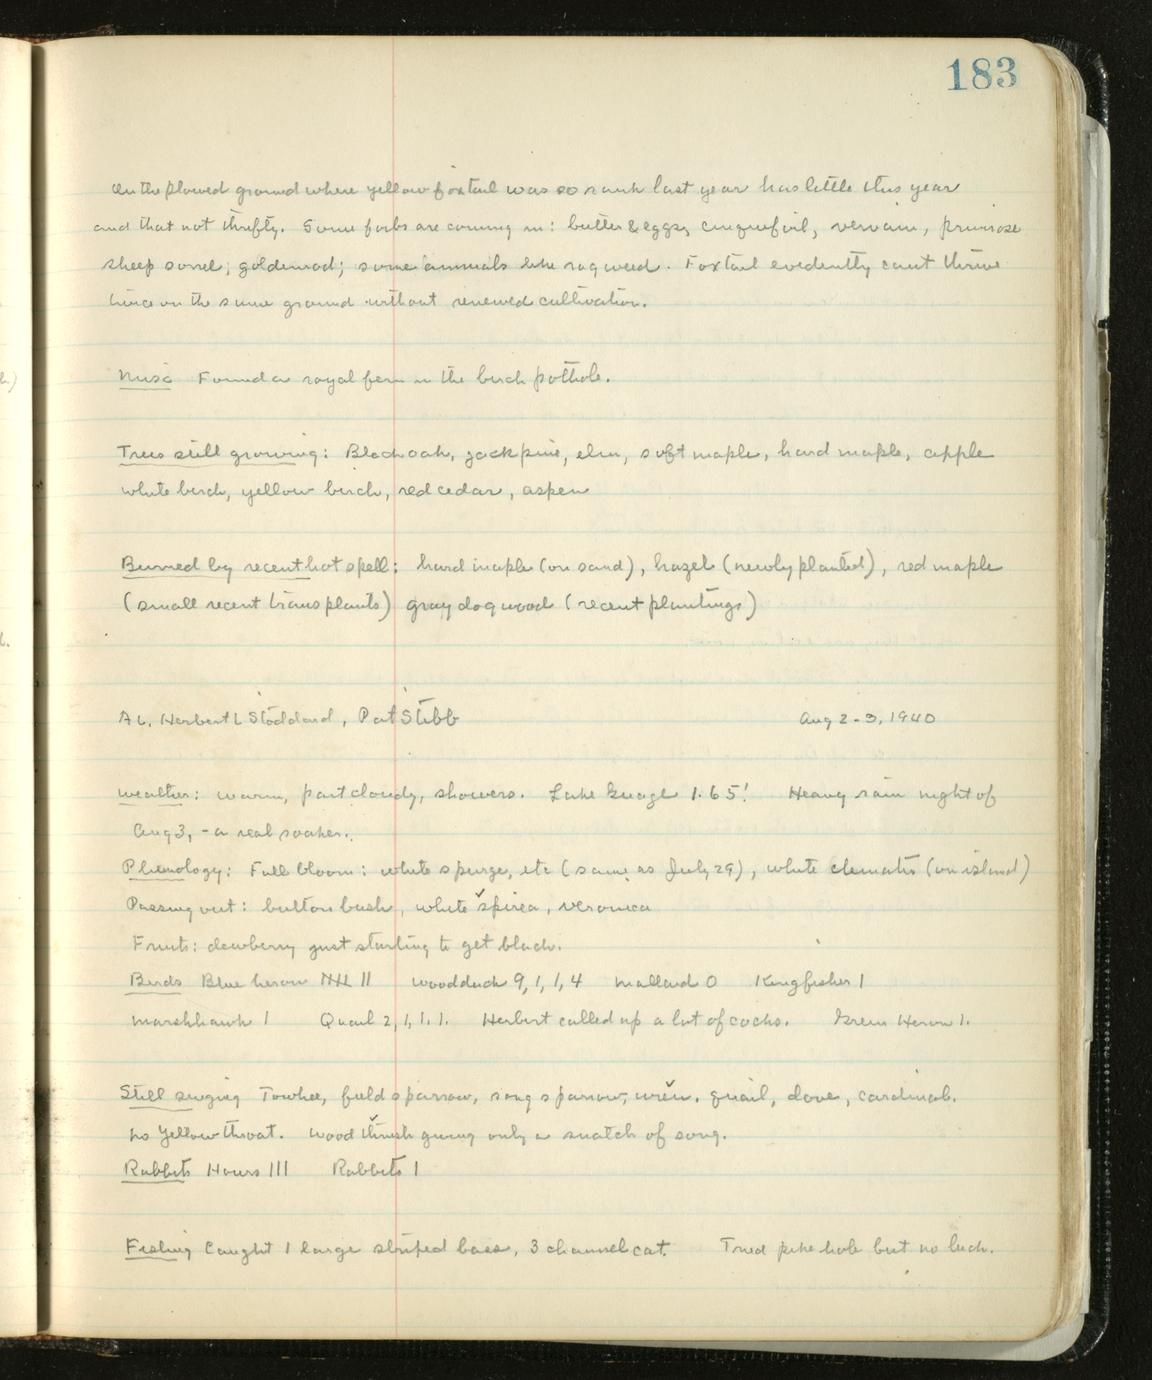 183
On the plowed ground where yellow foxtail was so rank last year has little this year
and that not thrifty. Some forbs are coming in: butter & eggs, cinquefoil, vervain, primrose
sheep sorrel, goldenrod; some annuals like ragweed. Foxtail evidently cant thrive
twice on the same ground without renewed cultivation.
Misc Found a royal fern in the birch pothole.
Trees still growing: Black oak, jackpine, elm, soft maple, hard maple, apple
white birch, yellow birch, red cedar, aspen
Burned by recent hot spell: hard maple (on sand), hazel (newly planted), red maple
(small recent transplants) gray dogwood (recent plantings)
AL. Herbert L Stoddard, Pat Stibb Aug 2-3, 1940
Weather: warm, part cloudy, showers. Lake Guage 1.65! Heavy rain night of
Aug 3, - a real soaker.
Phenology: Full bloom: white spurge, etc (same as July 29), white clematis (on island)
Passing out: button bush, white spirea, veronica
Fruits: dewberry just starting to get black.
Birds Blue heron NHL II woodduck 9, 1, 1, 4 Mallard 0 Kingfisher 1
Marshhawk 1 Quail 2, 1, 1. 1. Herbert called up a lot of cocks. Green Heron 1.
Still singing Towhee, field sparrow, song sparrow, wren, quail, dove, cardinal.
No Yellowthroat. Wood thrush giving only a snatch of song.
Rabbits Hours III Rabbits 1
Fishing Caught 1 large striped bass, 3 channel cat. Tried pike hole but no luck.